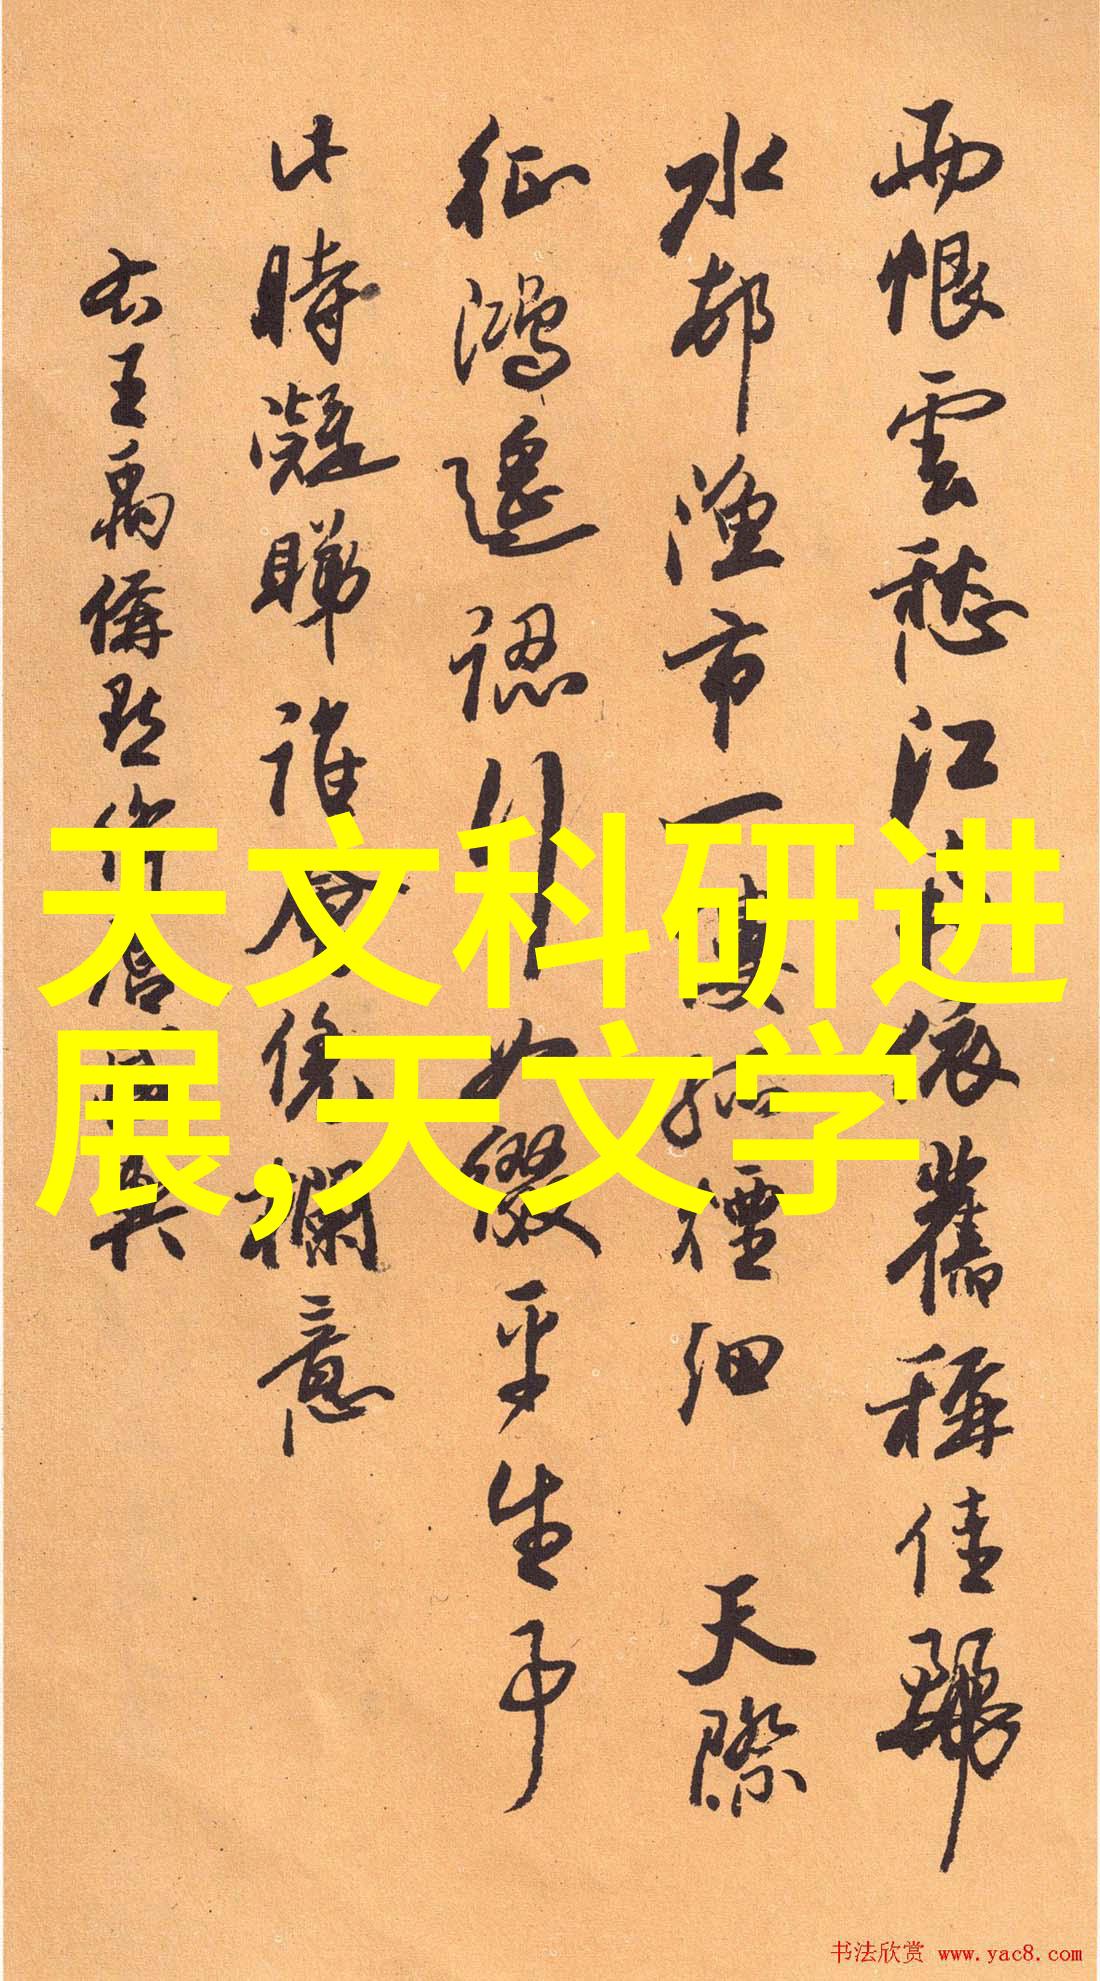 雨恨雲愁江南依舊稱佳麗
水邨漁市一縷孤煙細 天際
征鴻遙認行如綴平生事
此時凝睇誰會憑欄意
右王禹偁點絳唇感興
天文科研进
展,天文学
书法欣赏 www.yac8.com